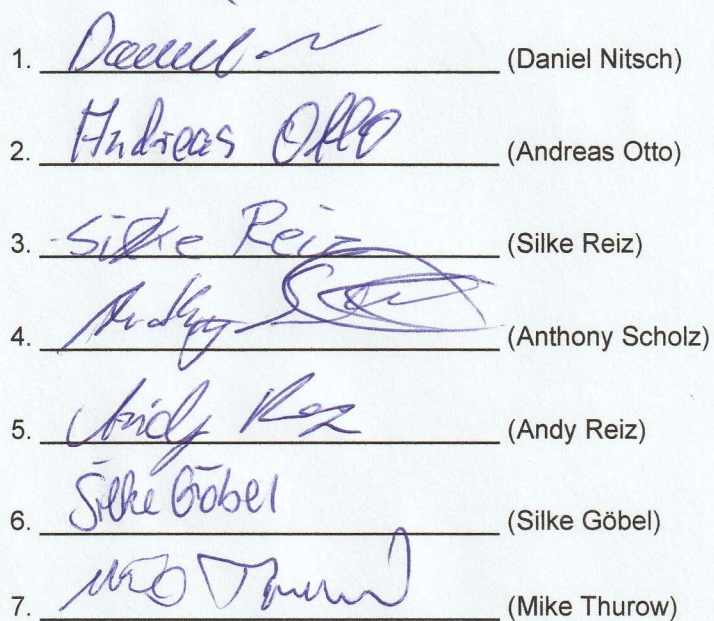 1. Daniel (Daniel Nitsch)
2. Andreas Otto (Andreas Otto)
3. Silke Reiz (Silke Reiz)
4. Anthony (Anthony Scholz)
5. Andy Reiz (Andy Reiz)
6. Silke Göbel (Silke Göbel)
7. Thurow (Mike Thurow)